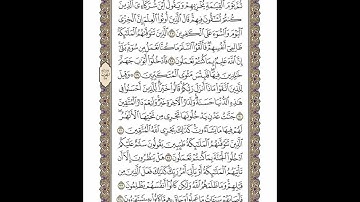 ثُمَّ يَوْمَ ٱلْقِيَـٰمَةِ يُخْزِيهِمْ وَيَقُولُ أَيْنَ شُرَكَآءِىَ ٱلَّذِينَ
كُنتُمْ تُشَـٰٓقُّونَ فِيهِمْ قَالَ ٱلَّذِينَ أُوتُوا۟ ٱلْعِلْمَ إِنَّ ٱلْخِزْىَ
ٱلْيَوْمَ وَٱلسُّوٓءَ عَلَى ٱلْكَـٰفِرِينَ ٢٧ ٱلَّذِينَ تَتَوَفَّىٰهُمُ ٱلْمَلَـٰٓئِكَةُ
ظَالِمِىٓ أَنفُسِهِمْ فَأَلْقَوُا۟ ٱلسَّلَمَ مَا كُنَّا نَعْمَلُ مِن سُوٓءٍ بَلَىٰٓ
إِنَّ ٱللَّهَ عَلِيمٌۢ بِمَا كُنتُمْ تَعْمَلُونَ ٢٨ فَٱدْخُلُوٓا۟ أَبْوَٰبَ جَهَنَّمَ
خَـٰلِدِينَ فِيهَا فَلَبِئْسَ مَثْوَى ٱلْمُتَكَبِّرِينَ ٢٩ وَقِيلَ
لِلَّذِينَ ٱتَّقَوْا۟ مَاذَآ أَنزَلَ رَبُّكُمْ قَالُوا۟ خَيْرًا لِّلَّذِينَ أَحْسَنُوا۟ فِى
هَـٰذِهِ ٱلدُّنْيَا حَسَنَةٌ وَلَدَارُ ٱلْـَٔاخِرَةِ خَيْرٌ وَلَنِعْمَ دَارُ ٱلْمُتَّقِينَ
٣٠ جَنَّـٰتُ عَدْنٍ يَدْخُلُونَهَا تَجْرِى مِن تَحْتِهَا ٱلْأَنْهَـٰرُ
لَهُمْ فِيهَا مَا يَشَآءُونَ كَذَٰلِكَ يَجْزِى ٱللَّهُ ٱلْمُتَّقِينَ
٣١ ٱلَّذِينَ تَتَوَفَّىٰهُمُ ٱلْمَلَـٰٓئِكَةُ طَيِّبِينَ يَقُولُونَ سَلَـٰمٌ عَلَيْكُمُ
ٱدْخُلُوا۟ ٱلْجَنَّةَ بِمَا كُنتُمْ تَعْمَلُونَ ٣٢ هَلْ يَنظُرُونَ إِلَّآ أَن
تَأْتِيَهُمُ ٱلْمَلَـٰٓئِكَةُ أَوْ يَأْتِىَ أَمْرُ رَبِّكَ كَذَٰلِكَ فَعَلَ ٱلَّذِينَ
مِن قَبْلِهِمْ وَمَا ظَلَمَهُمُ ٱللَّهُ وَلَـٰكِن كَانُوٓا۟ أَنفُسَهُمْ يَظْلِمُونَ
٣٣ فَأَصَابَهُمْ سَيِّـَٔاتُ مَا عَمِلُوا۟ وَحَاقَ بِهِم مَّا كَانُوا۟